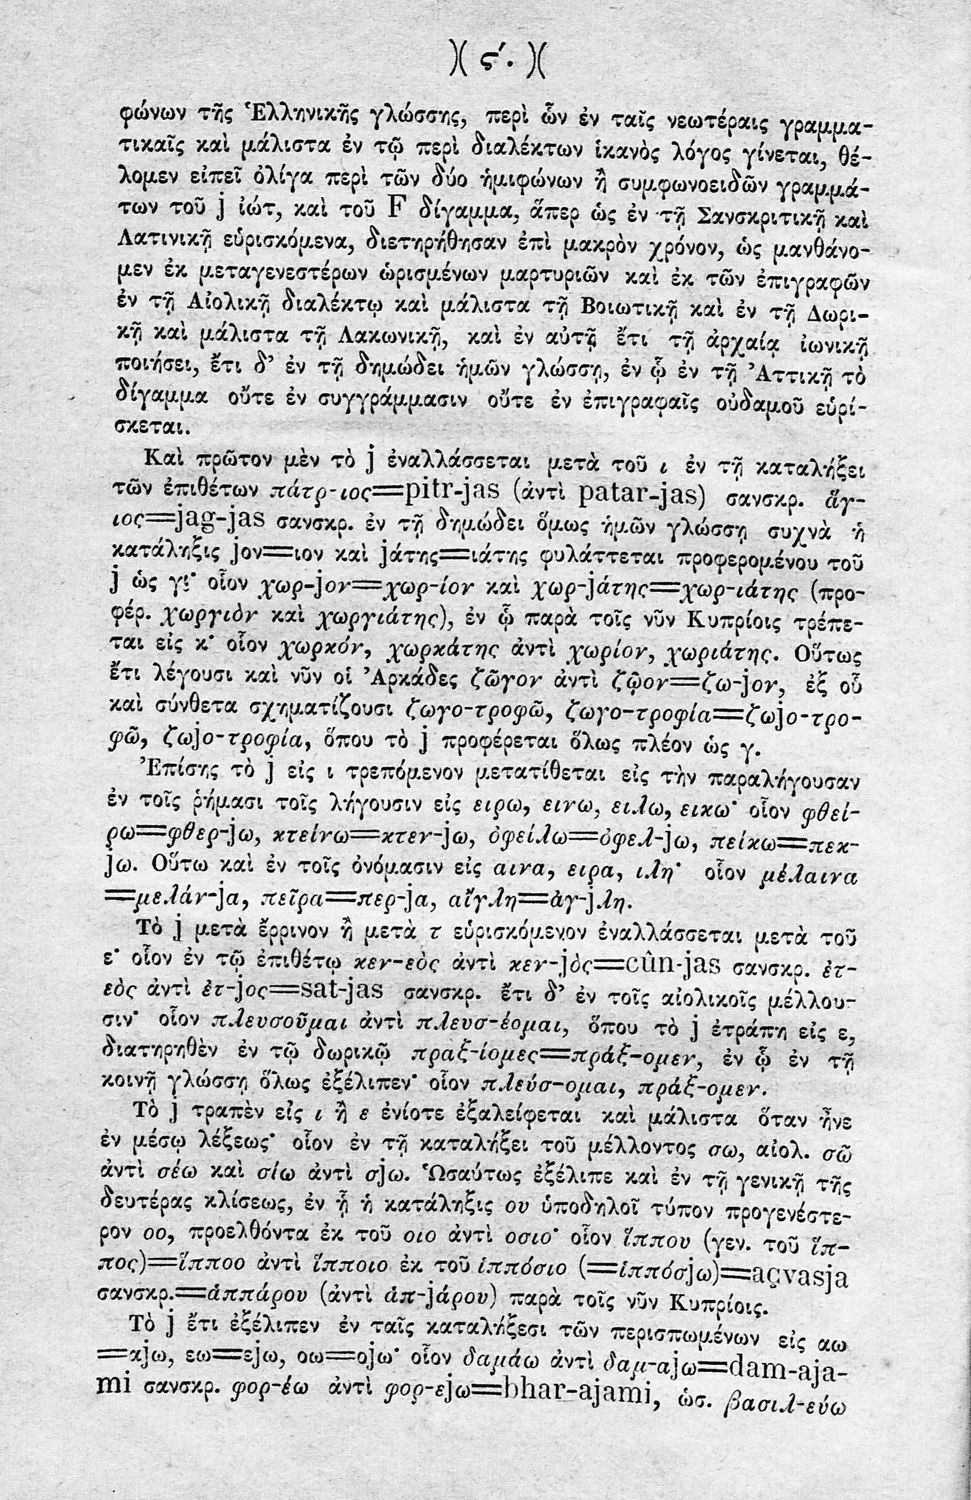 )( ς΄. )(
φώνων τῆς Ἑλληνικῆς γλώσσης, περὶ ὧν ἐν ταῖς νεωτέραις γραμμα-
τικαῖς καὶ μάλιστα ἐν τῷ περὶ διαλέκτων ἱκανὸς λόγος γίνεται, θέ-
λομεν εἰπεῖ ὀλίγα περὶ τῶν δύο ἡμιφώνων ἢ συμφωνοειδῶν γραμμά-
των τοῦ j ἰώτ, καὶ τοῦ F δίγαμμα, ἅπερ ὡς ἐν τῇ Σανσκριτικῇ καὶ
Λατινικῇ εὑρισκόμενα, διετηρήθησαν ἐπὶ μακρὸν χρόνον, ὡς μανθάνο-
μεν ἐκ μεταγενεστέρων ὡρισμένων μαρτυριῶν καὶ ἐκ τῶν ἐπιγραφῶν
ἐν τῇ Αἰολικῇ διαλέκτῳ καὶ μάλιστα τῇ Βοιωτικῇ καὶ ἐν τῇ Δωρι-
κῇ καὶ μάλιστα τῇ Λακωνικῇ, καὶ ἐν αὐτῇ ἔτι τῇ ἀρχαίᾳ ἰωνικῇ
ποιήσει, ἔτι δ' ἐν τῇ δημώδει ἡμῶν γλώσσῃ, ἐν ᾧ ἐν τῇ Ἀττικῇ τὸ
δίγαμμα οὔτε ἐν συγγράμμασιν οὔτε ἐν ἐπιγραφαῖς οὐδαμοῦ εὑρί-
σκεται.
Καὶ πρῶτον μὲν τὸ j ἐναλλάσσεται μετὰ τοῦ ι ἐν τῇ καταλήξει
τῶν ἐπιθέτων πάτρ-ιος=pitr-jas (ἀντὶ patar-jas) σανσκρ. ἅγ-
ιος=jag-jas σανσκρ. ἐν τῇ δημώδει ὅμως ἡμῶν γλώσσῃ συχνὰ ἡ
κατάληξις jον=ιον καὶ jάτης=ιάτης φυλάττεται προφερομένου τοῦ
j ὡς γι· οἷον χωρ-jον=χωρ-ίον καὶ χωρ-jάτης=χωρ-ιάτης (προ-
φέρ. χωργιὸν καὶ χωργιάτης), ἐν ᾧ παρὰ τοῖς νῦν Κυπρίοις τρέπε-
ται εἰς κ· οἷον χωρκόν, χωρκάτης ἀντὶ χωρίον, χωριάτης. Οὕτως
ἔτι λέγουσι καὶ νῦν οἱ Ἀρκάδες ζῶγον ἀντὶ ζῷον=ζω-jον, ἐξ οὗ
καὶ σύνθετα σχηματίζουσι ζωγο-τροφῶ, ζωγο-τροφία=ζωjο-τρο-
φῶ, ζωjο-τροφία, ὅπου τὸ j προφέρεται ὅλως πλέον ὡς γ.
Ἐπίσης τὸ j εἰς ι τρεπόμενον μετατίθεται εἰς τὴν παραλήγουσαν
ἐν τοῖς ῥήμασι τοῖς λήγουσιν εἰς ειρω, εινω, ειλω, εικω· οἷον φθεί-
ρω=φθερ-jω, κτείνω=κτεν-jω, ὀφείλω=ὀφελ-jω, πείκω=πεκ-
jω. Οὕτω καὶ ἐν τοῖς ὀνόμασιν εἰς αινα, ειρα, ιλη· οἷον μέλαινα
=μελάν-jα, πεῖρα=περ-jα, αἴγλη=ἀγ-jλη.
Τὸ j μετὰ ἔρρινον ἢ μετὰ τ εὑρισκόμενον ἐναλλάσσεται μετὰ τοῦ
ε· οἷον ἐν τῷ ἐπιθέτῳ κεν-εὸς ἀντὶ κεν-jὸς=cûn-jas σανσκρ. ἐτ-
εὸς ἀντὶ ἐτ-jος=sat-jas σανσκρ. ἔτι δ' ἐν τοῖς αἰολικοῖς μέλλου-
σιν· οἷον πλευσοῦμαι ἀντὶ πλευσ-έομαι, ὅπου τὸ j ἐτράπη εἰς ε,
διατηρηθὲν ἐν τῷ δωρικῷ πραξ-ίομες=πράξ-ομεν, ἐν ᾧ ἐν τῇ
κοινῇ γλώσσῃ ὅλως ἐξέλιπεν· οἷον πλεύσ-ομαι, πράξ-ομεν.
Τὸ j τραπὲν εἰς ι ἢ ε ἐνίοτε ἐξαλείφεται καὶ μάλιστα ὅταν ἦνε
ἐν μέσῳ λέξεως· οἷον ἐν τῇ καταλήξει τοῦ μέλλοντος σω, αἰολ. σῶ
ἀντὶ σέω καὶ σίω ἀντὶ σjω. Ὡσαύτως ἐξέλιπε καὶ ἐν τῇ γενικῇ τῆς
δευτέρας κλίσεως, ἐν ᾗ ἡ κατάληξις ου ὑποδηλοῖ τύπον προγενέστε-
ρον οο, προελθόντα ἐκ τοῦ οιο ἀντὶ οσιο· οἷον ἵππου (γεν. τοῦ ἵπ-
πος)=ἵπποο ἀντὶ ἵπποιο ἐκ τοῦ ἱππόσιο (=ἱππόσjω)=açvasja
σανσκρ.=ἀππάρου (ἀντὶ ἀπ-jάρου) παρὰ τοῖς νῦν Κυπρίοις.
Τὸ j ἔτι ἐξέλιπεν ἐν ταῖς καταλήξεσι τῶν περισπωμένων εἰς αω
=αjω, εω=εjω, οω=οjω· οἷον δαμάω ἀντὶ δαμ-αjω=dam-aja-
mi σανσκρ. φορ-έω ἀντὶ φορ-εjω=bhar-ajami, ὡσ. βασιλ-εύω